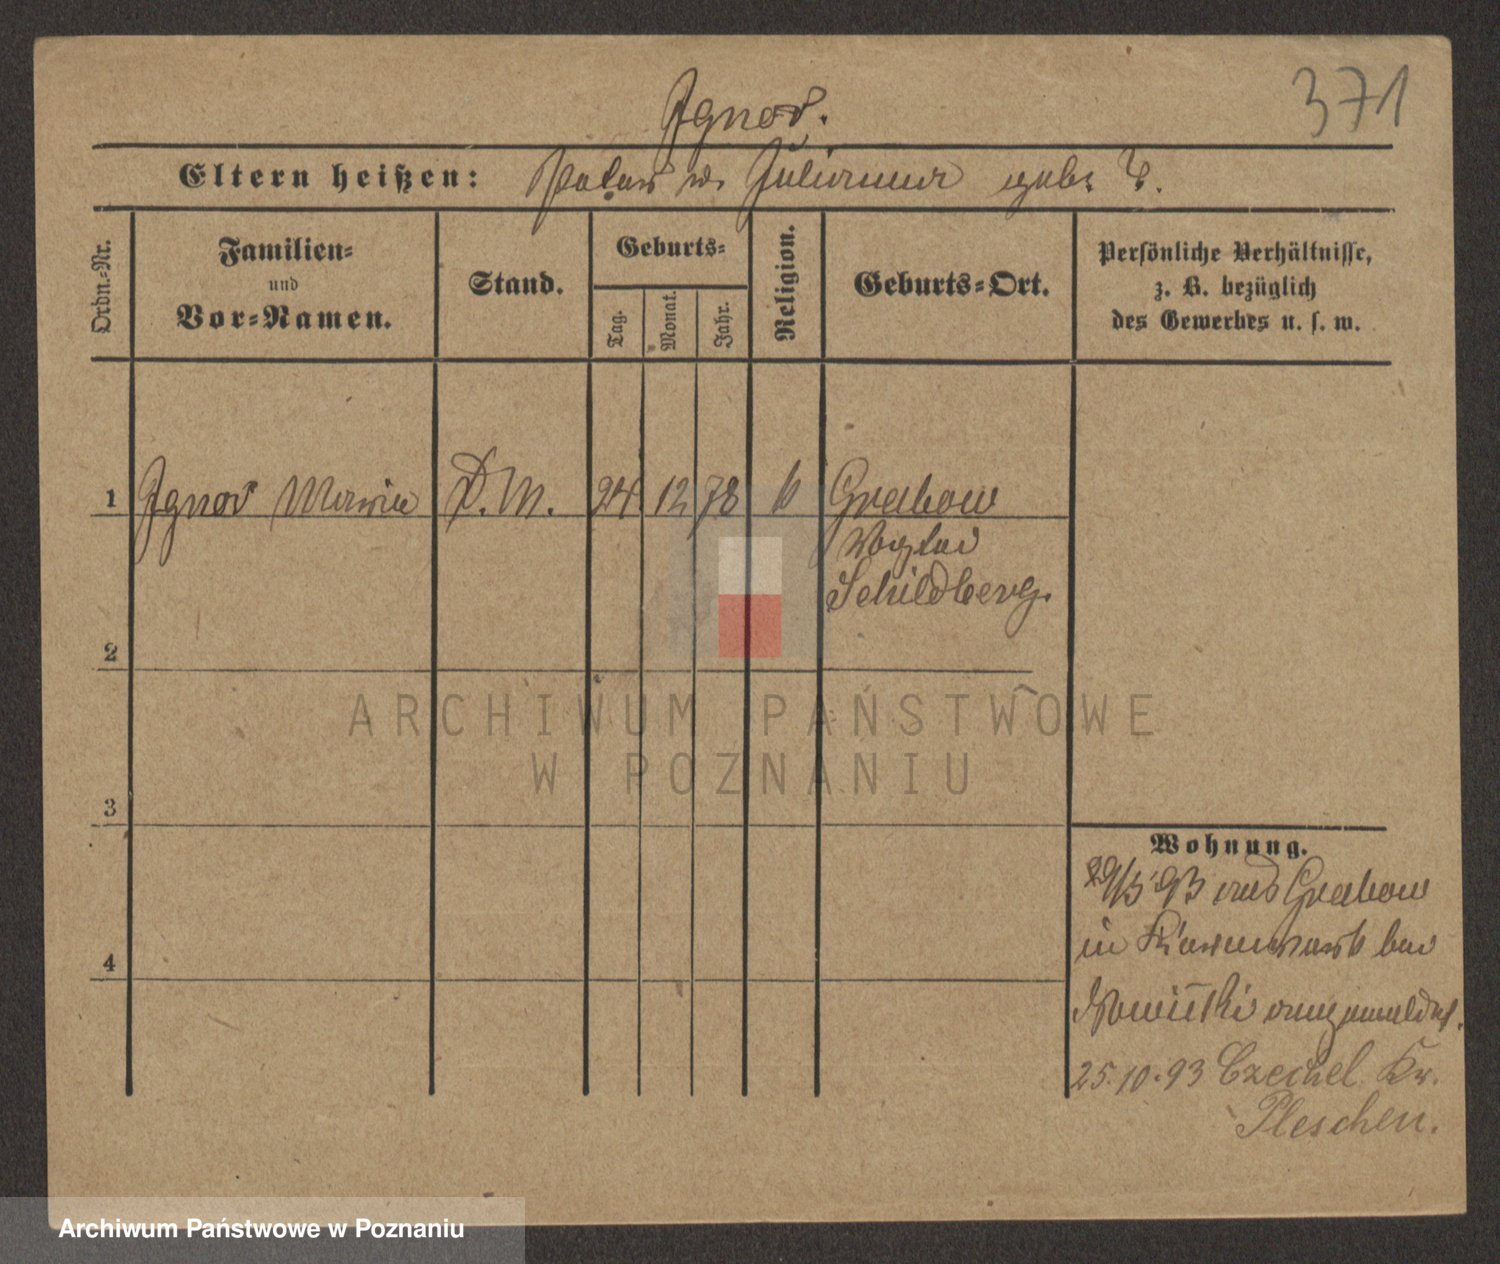 371
Ignor.
Eltern heißen: Peter u. Julianna geb. T.
Ordn.-Nr.
Familien-
und
Vor-Namen.
Stand.
Geburts-
Tag.
Monat.
Jahr.
Religion.
Geburts-Ort.
Persönliche Verhältnisse,
z. B. bezüglich
des Gewerbes u. s. w.
1 Ignor D. M. 24. 12 78 k Grabow
Schildberg.
2
3
4
Wohnung.
29/5 93 aus Grabow
in bei
angemeldet.
25.10.93 Czechel Kr.
Pleschen.
ARCHIWUM PAŃSTWOWE
W POZNANIU
Archiwum Państwowe w Poznaniu